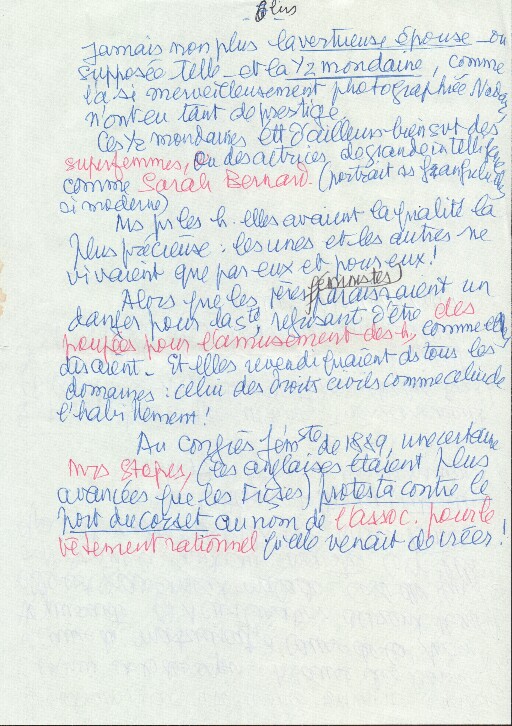 plus
Jamais non plus la vertueuse épouse ou
supposée telle et la 1/2 mondaine, comme
l'a si merveilleusement photographiée Nadar
n'ont eu tant de prestige
Ces 1/2 mondaines ett d'ailleurs bien svt des
superfemmes, ou des actrices de grande intellig
comme Sarah Bernard (portrait ss
si moderne)
Ms pr les h. elles avaient la qualité la
plus précieuse : les unes et les autres ne
vivaient que par eux et pour eux !
Alors que les 1ères féministes paraissaient un
danger pour la sté, refusant d'être des
poupées pour l'amusement des h, comme elles
disaient. Et elles revendiquaient ds tous les
domaines : celui des droits civils comme celui de
l'habillement !
Au congrès fémste de 1889, une certaine
Mrs Stopes, (les anglaises étaient plus
avancées que les Frçses) protesta contre le
port du corset au nom de l'assoc. pour le
vêtement rationnel qu'elle venait de créer !